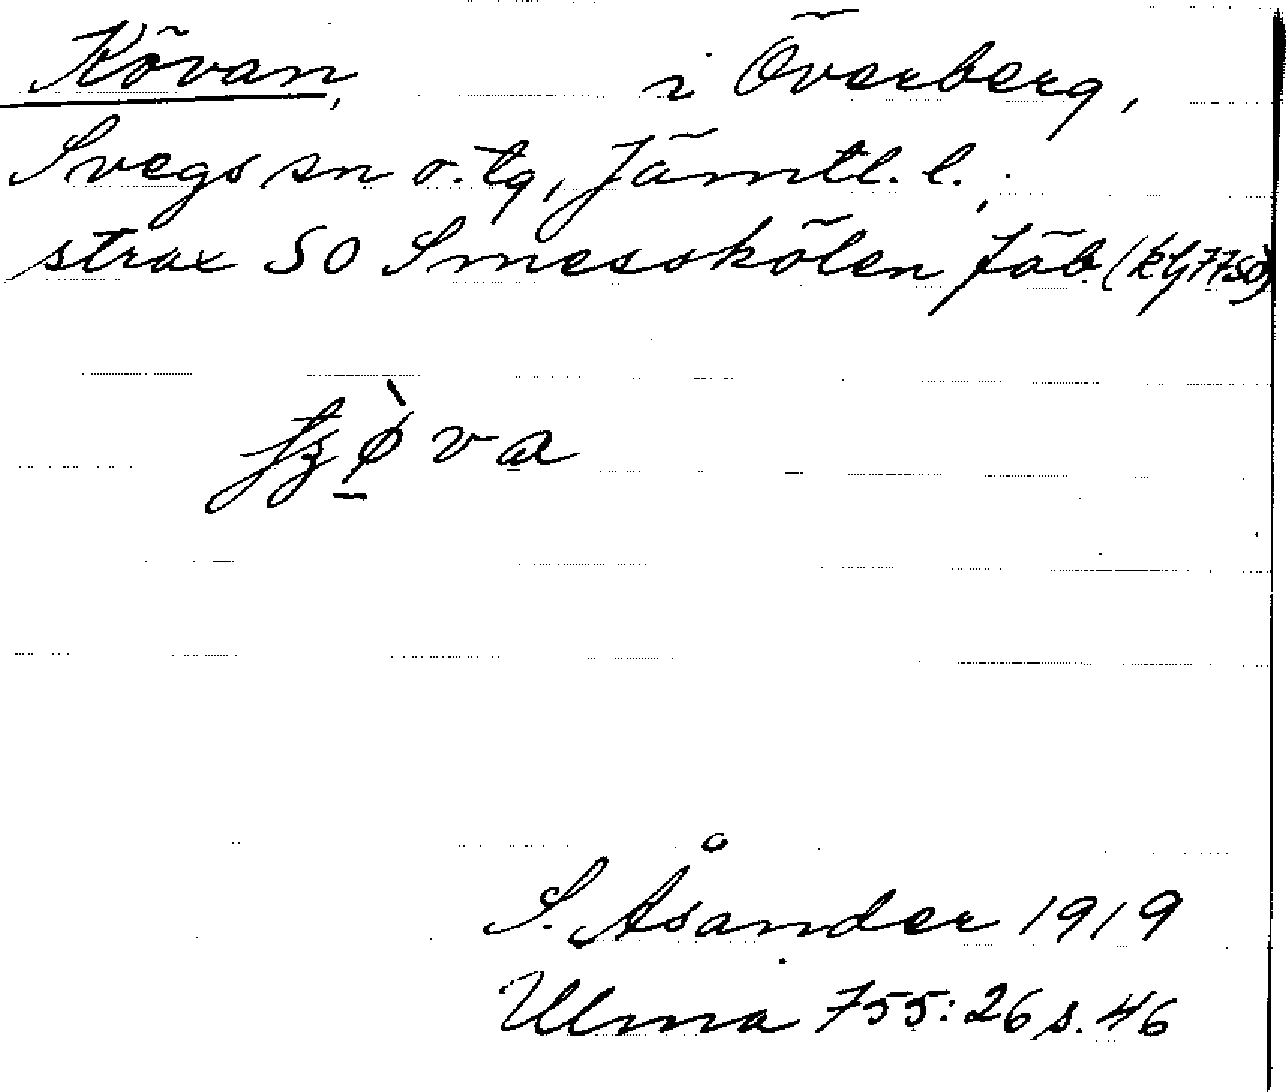 Kövan, i Överberg,
Svegs sn o. tg, Jämtl. l.,
strax SO Smesskölen fäb. (kbl 77SO)
va
S. Åsander 1919
Ulma 755:26 s. 46